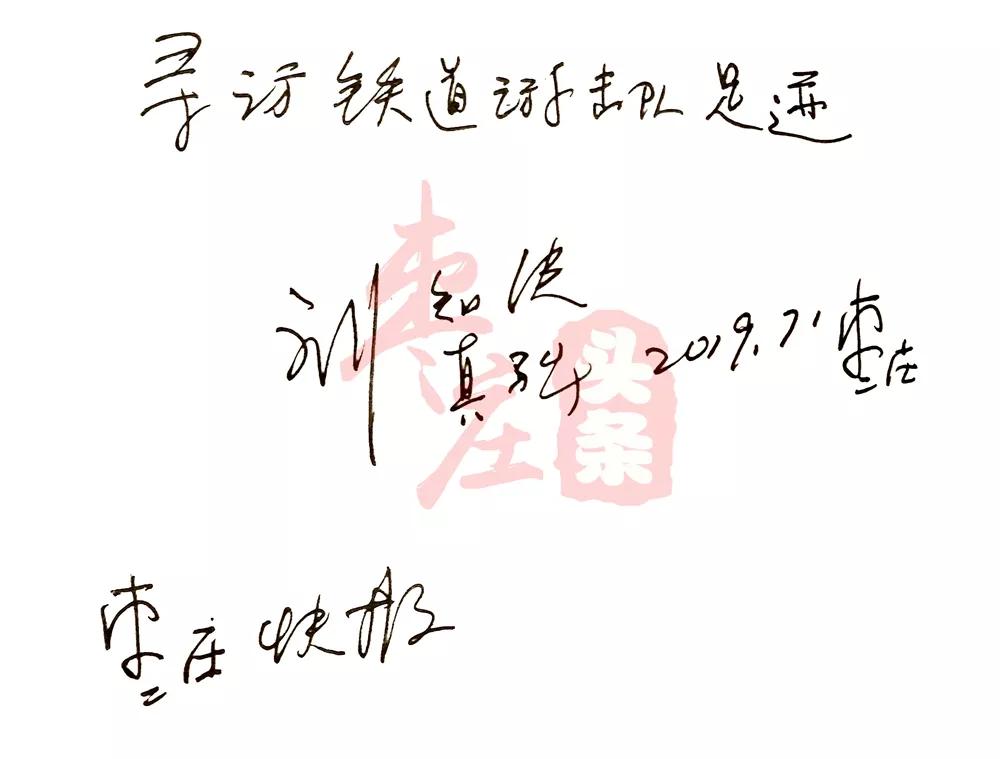 寻访铁道游击队足迹
刘知侠
真骅 2019.7.1 枣庄
枣庄头条
枣庄快报